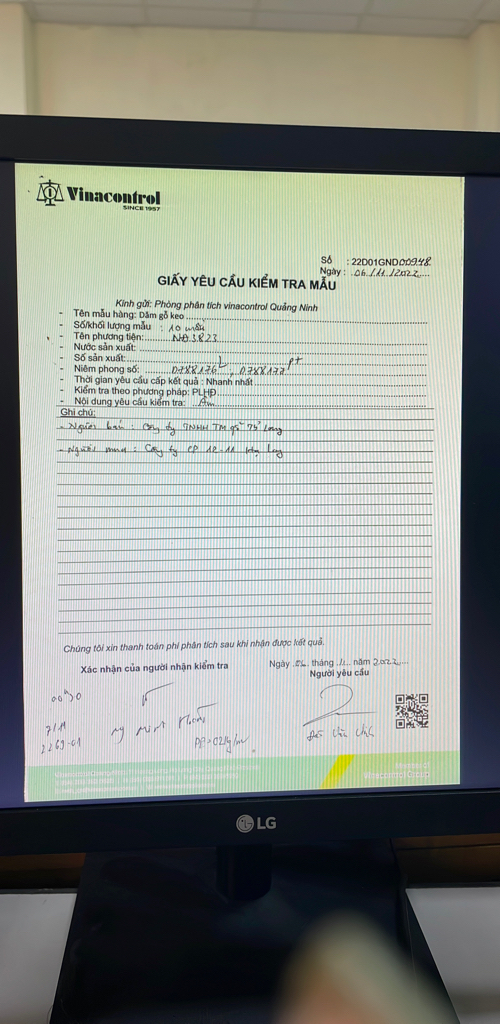 Vinacontrol
SINCE 1957
Số : 22D01GND00948
Ngày : 06/11/2022
GIẤY YÊU CẦU KIỂM TRA MẪU
Kính gửi: Phòng phân tích vinacontrol Quảng Ninh
- Tên mẫu hàng: Dăm gỗ keo
- Số/khối lượng mẫu : 10 mẫu
- Tên phương tiện: NĐ3823
- Nước sản xuất:
- Số sản xuất:
- Niêm phong số: 0788176, 0788177
- Thời gian yêu cầu cấp kết quả : Nhanh nhất
- Kiểm tra theo phương pháp: PLHĐ
- Nội dung yêu cầu kiểm tra: Ẩm
Ghi chú:
- Người bán : Công ty TNHH TM
- Người mua : Công ty CP 12-11 Hạ Long
Chúng tôi xin thanh toán phí phân tích sau khi nhận được kết quả.
Xác nhận của người nhận kiểm tra
Ngày 06 tháng 11 năm 2022
Người yêu cầu
7/11
2269-01
Member of
Vinacontrol Group
LG